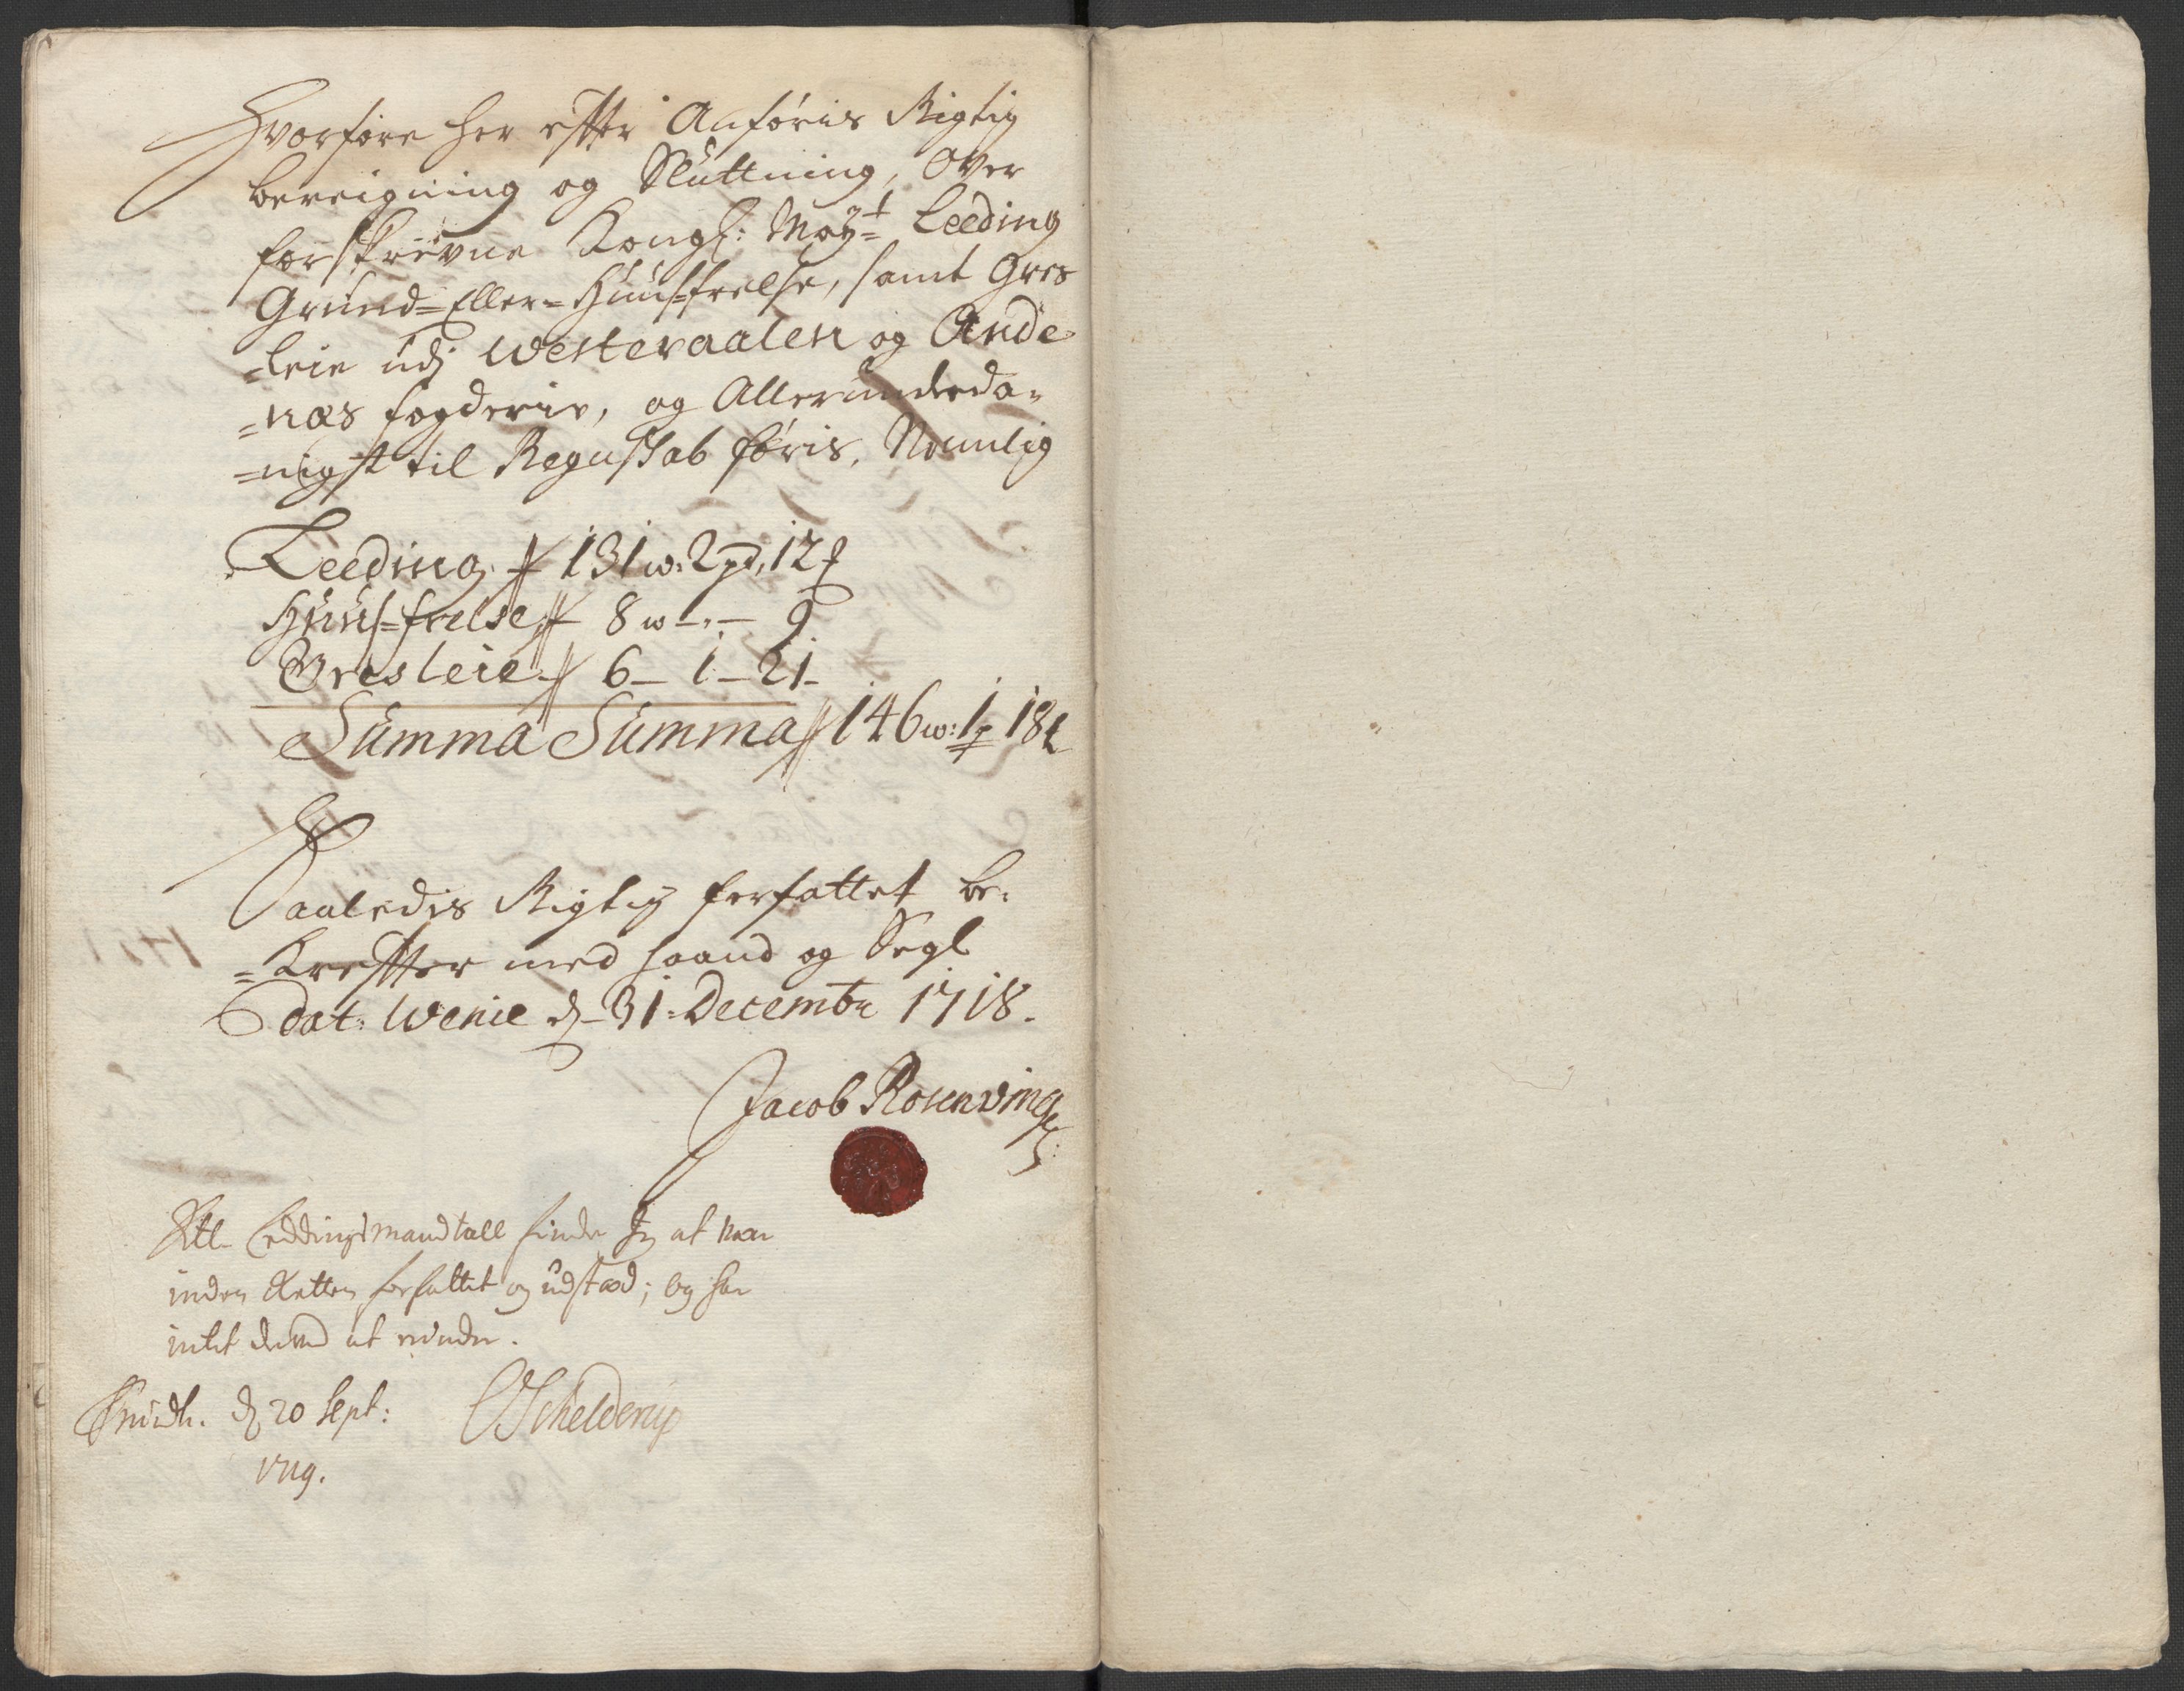 Hvorfore her efter Anføris Rigtig
bereigning og Sluttning, Over
forskrevne Kongl: May:t Leeding
Grund=Eller=Huus=frelse, samt Gres
=leie udj Westeraalen og Ande
=næs fogderie, og Allerunderda=
=nigst til Regnskab føris, Nemlig
Leeding. 131 w: 2 pd, 12
Huus=frelse 8 w - , - 9
Gres leie 6 - 1 - 21 -
Summa Summa 146 w: 1 p 18
Saaledis Rigtig forfattet be=
=krefter med haand og Segl
dat: Wenie d. 31. Decembr 1718.
Jacob Rosenving
Leddingsmandtall finder Jeg at være
inden Retten forfattet og udstæd; og har
intet derved at erindre.
Trundh. d. 20 Sept: Schelderup
1719.